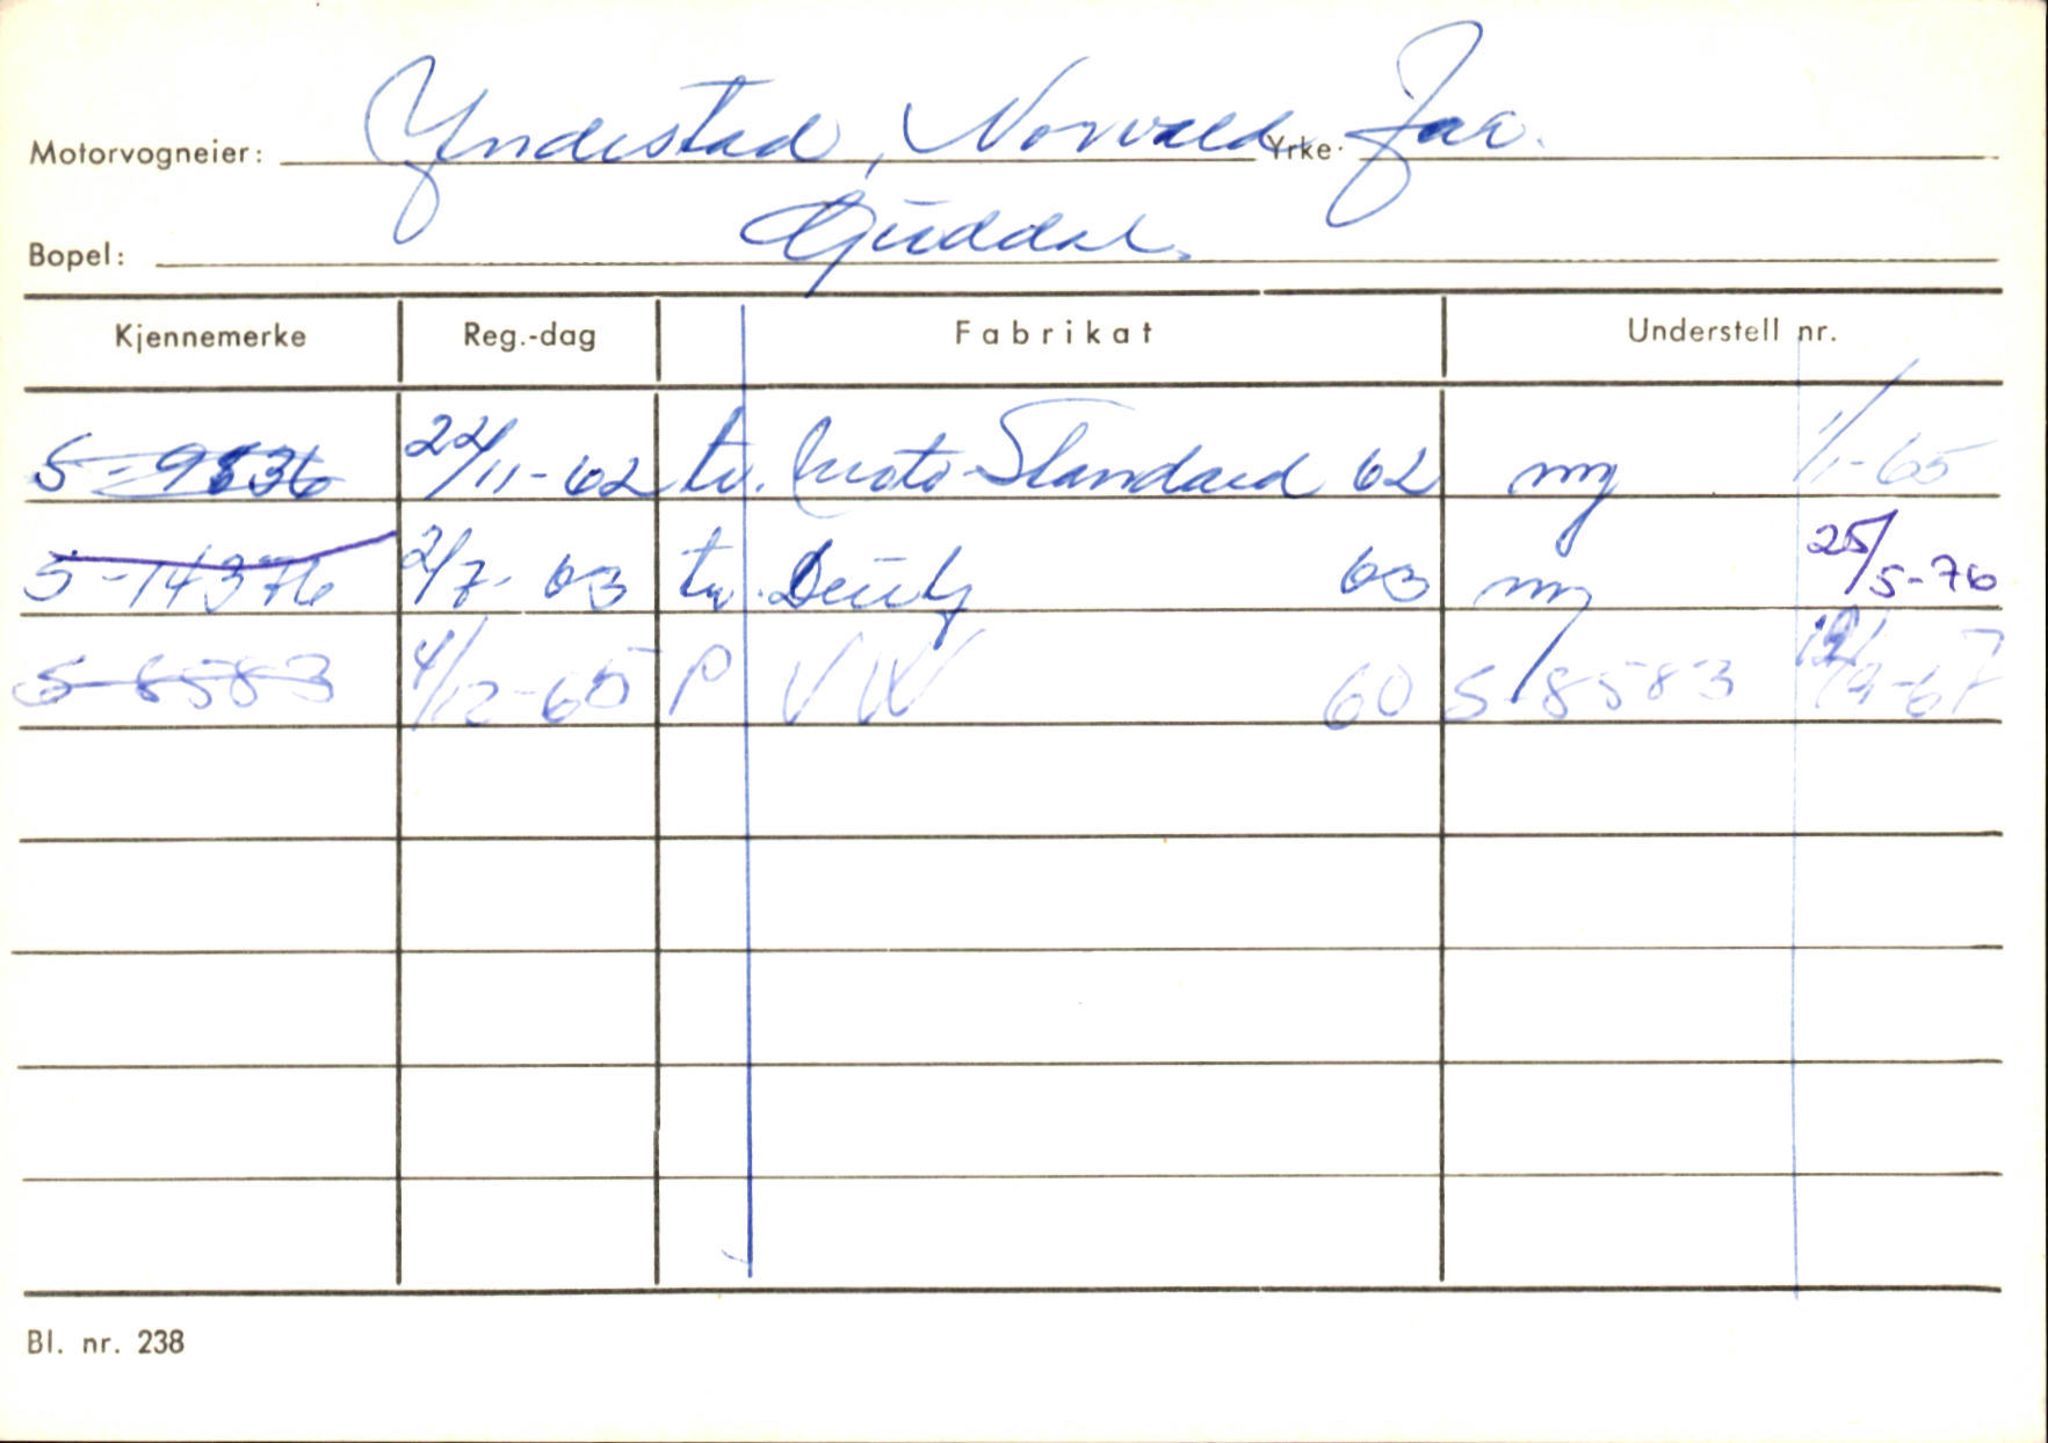 Motorvogneier: Yndestad, Norvald Yrke: Far.
Bopel: Guddal.
Kjennemerke Reg.-dag Fabrikat Understell nr.
S-9836 22/11-62 tr. Moto-Standard 62 ny 1/1-65
S-14376 2/7-63 tr. Deutz 63 ny 25/5-76
S-8583 4/12-65 P VW 60 S-8583 12/9-67
Bl. nr. 238